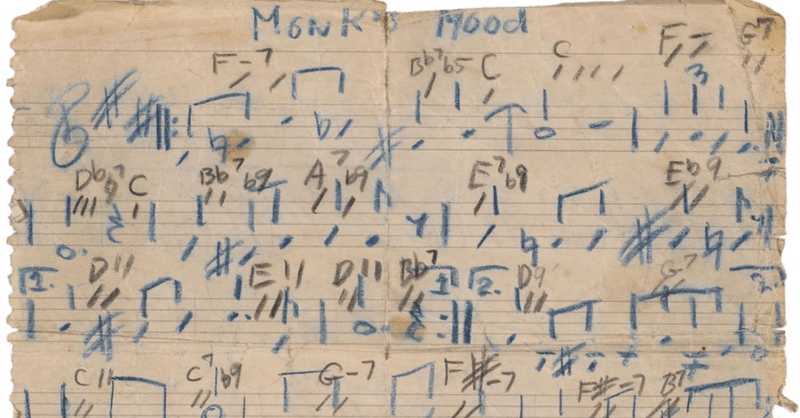 Monk's Mood
F-7 Bb7b5 C C F- G7
3
Db7 C Bb7b9 A7b9 E7b9 Eb9
1. D11 E11 D11 Bb7 1. 2. D9 G7 2.
C11 C7b9 G-7 F#-7 F#-7 B7